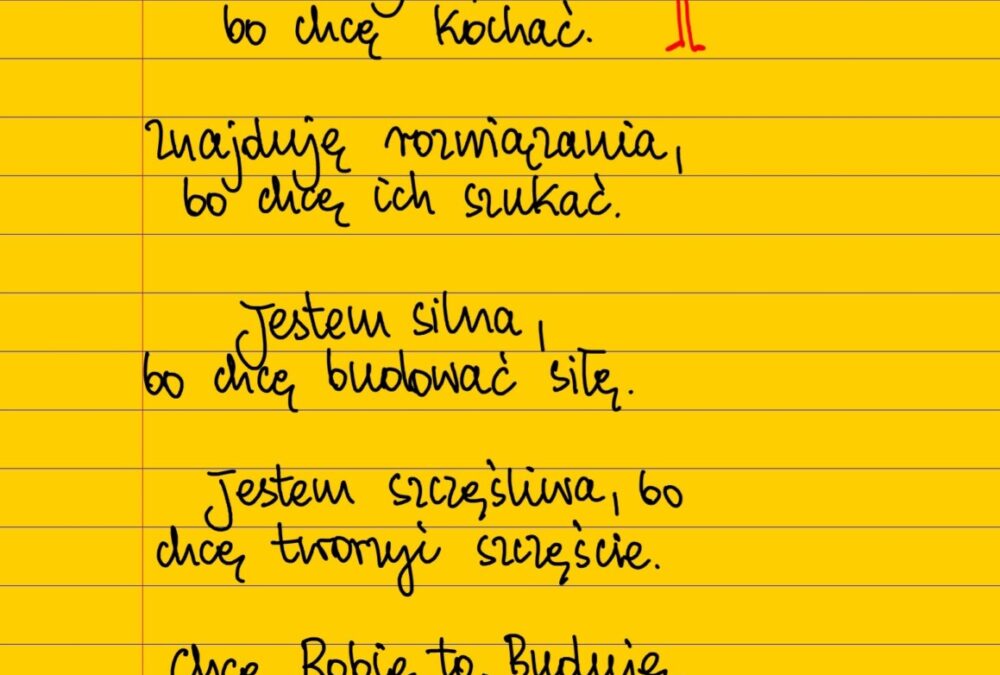 bo chcę kochać.
Znajduję rozwiązania,
bo chcę ich szukać.
Jestem silna,
bo chcę budować siłę.
Jestem szczęśliwa, bo
chcę tworzyć szczęście.
Chcę. Robię to. Buduję